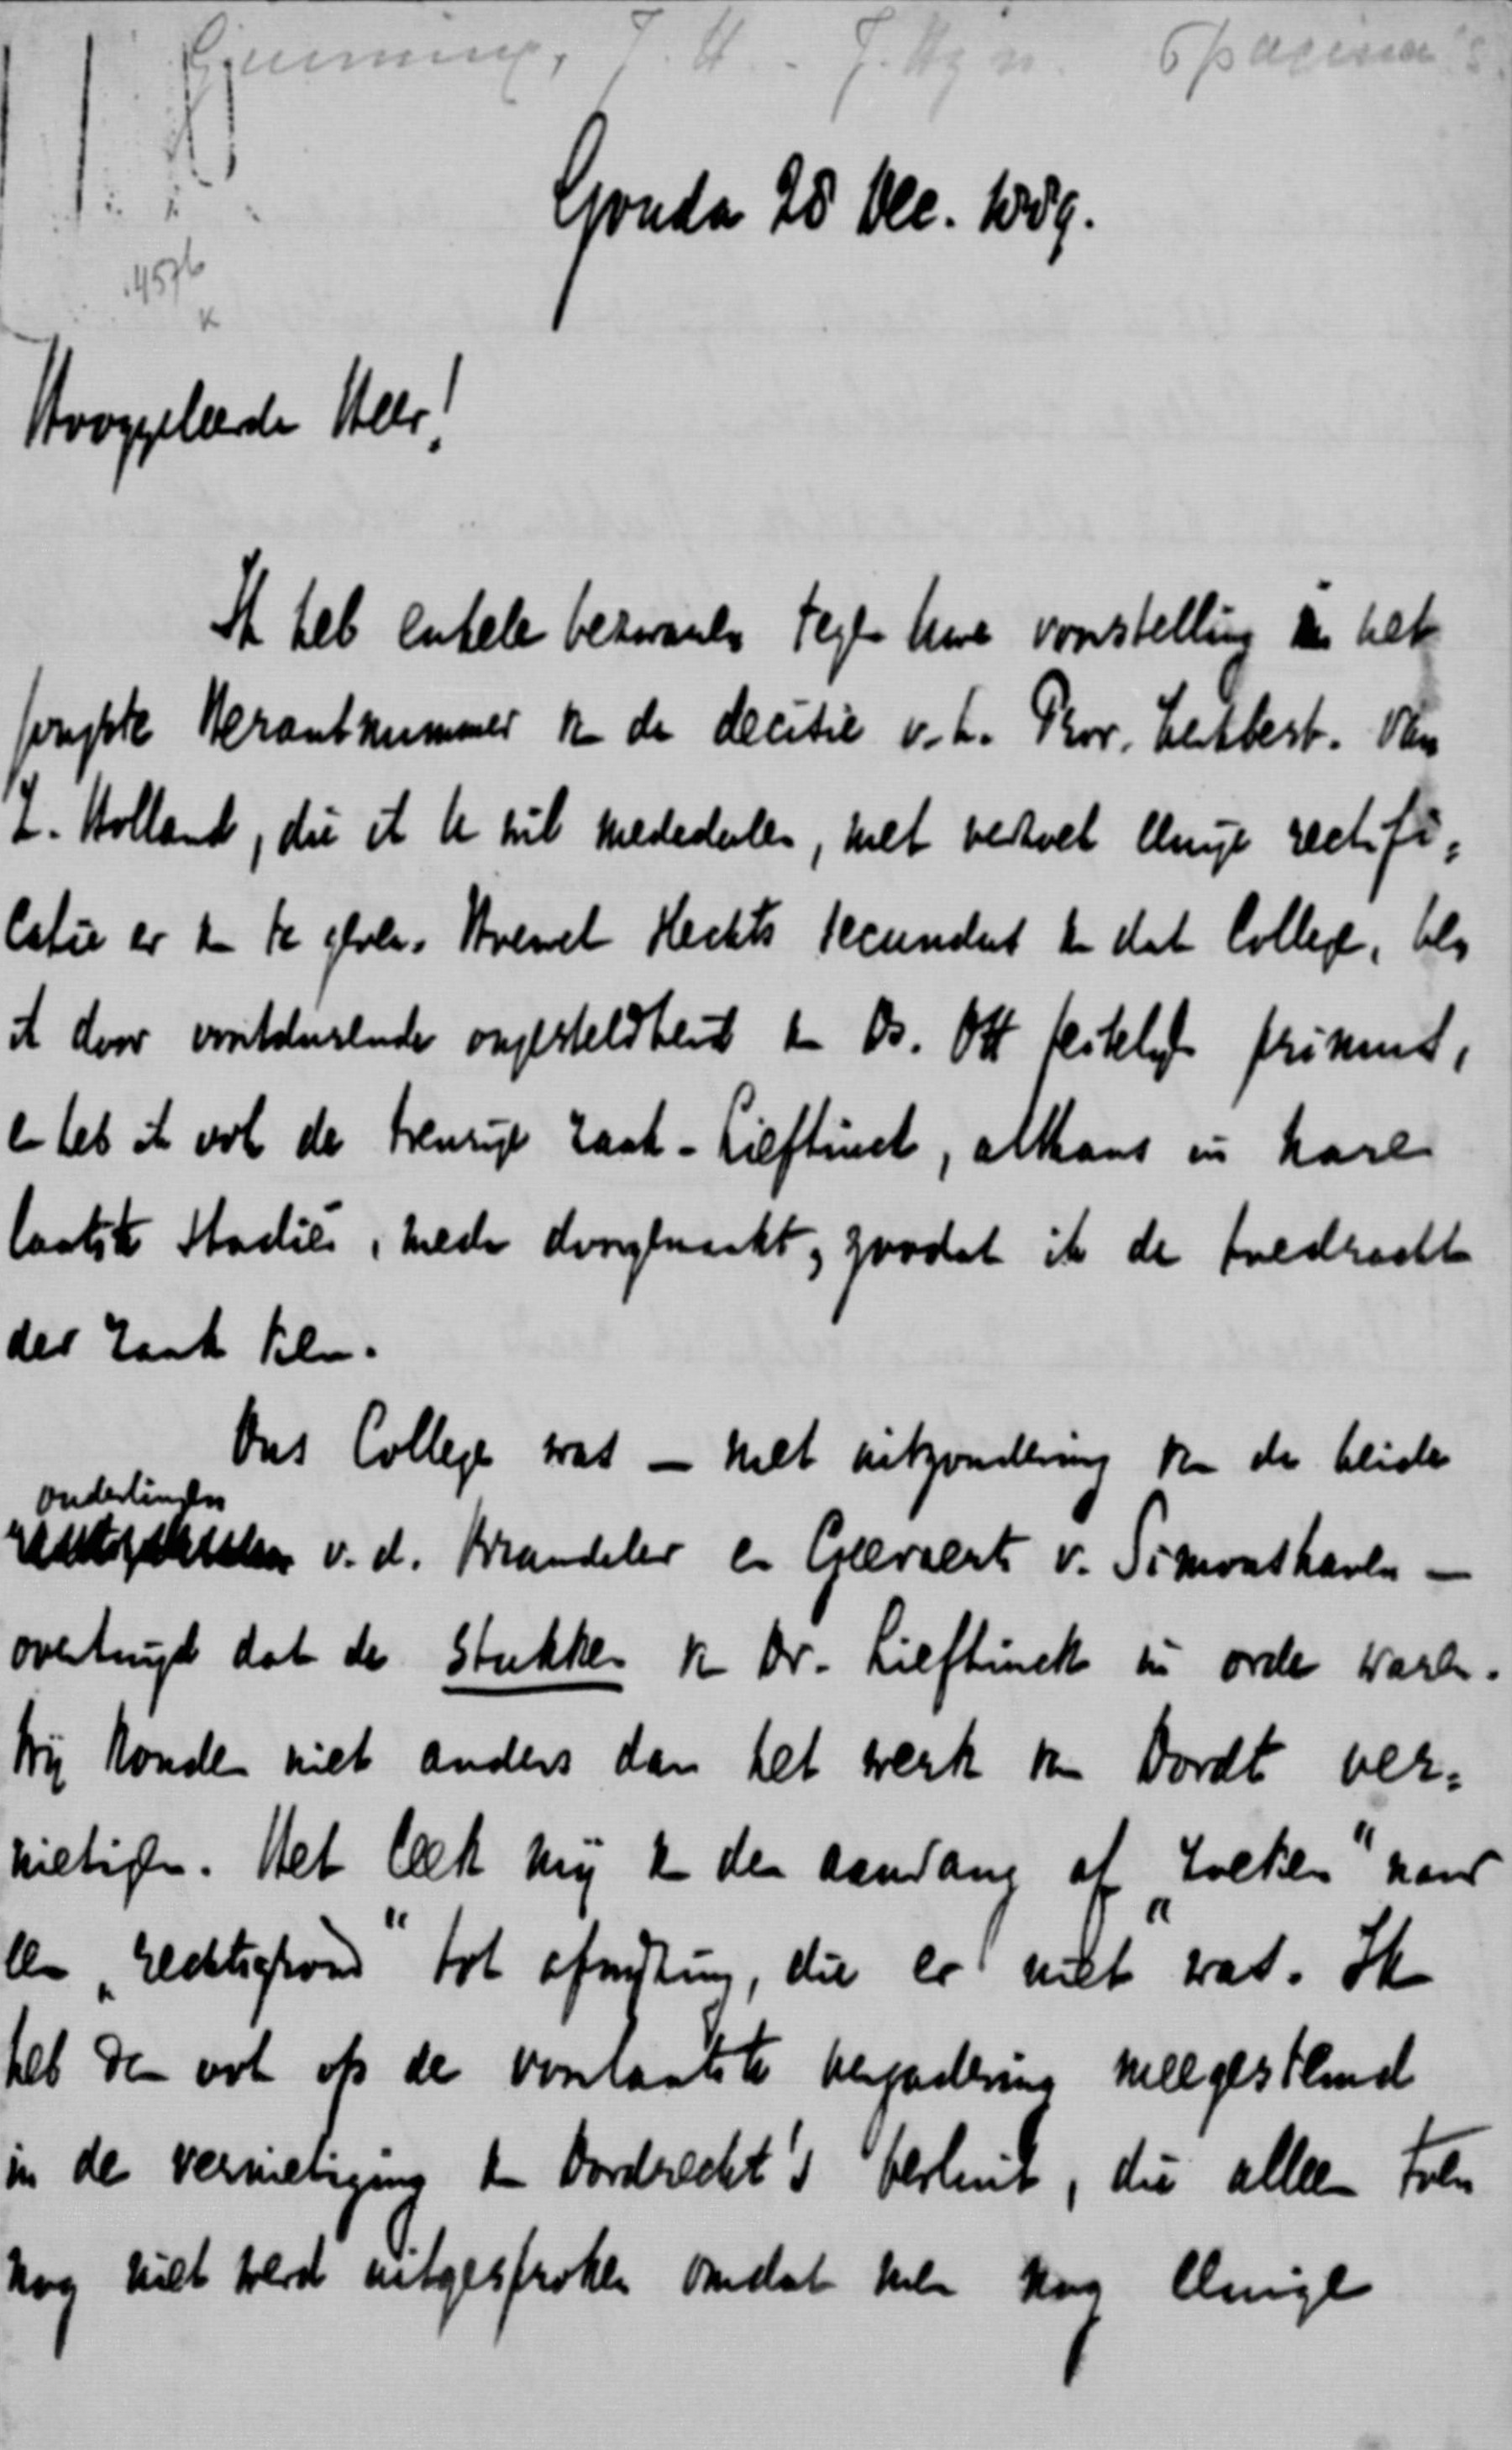 Gunning, J. H. - J. Hzn. 6 pagina's
Gouda 28 Dec. 1889.
4576
K
Hooggeleerde Heer!
Ik heb enkele bezwaren tegen Uwe voorstelling in het
jongste Herautnummer v. de decisie v. h. Prov. Kerkbest. van
Z. Holland, die ik U wil mededeelen, met verzoek eenige rectifi=
catie er v. te geven. Hoewel slechts secundus v. dat College, ben
ik door voortdurende ongesteldheid v. Ds. Ott feitelijk primus,
en heb ik ook de treurige zaak-Lieftinck, althans in hare
laatste stadiën, mede doorgemaakt, zoodat ik de toedracht
der zaak ken.
Ons College was — met uitzondering van de beide
ouderlingen
v. d. Brandeler en Gevaerts v. Simonshaven —
overtuigd dat de stukken v. Dr. Lieftinck in orde waren.
Wij konden niet anders dan het werk van Dordt ver=
nietigen. Het leek mij v. den aanvang af „zoeken" naar
een „rechtsgrond" tot afwijzing, die er niet was. Ik
heb dan ook op de voorlaatste vergadering meegestemd
in de vernietiging v. Dordrecht's besluit, die alleen toen
nog niet werd uitgesproken omdat men nog eenige